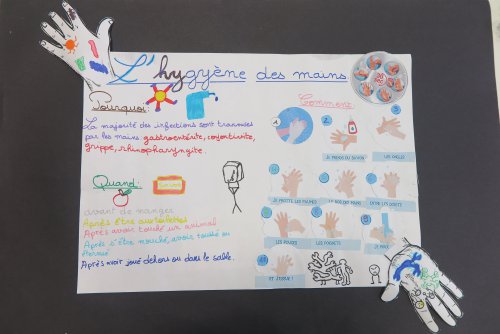 L'hygyène des mains
Pourquoi:
La majorité des infections sont transmises
par les mains gastroentérite, conjonctivite,
grippe, rhinopharyngite.
Quand:
avant de manger
Après être aux toilettes
Après avoir touché un animal
Après s'être mouché, avoir toussé ou
éternué
Après avoir joué dehors ou dans le sable.
Comment
1
2
3
JE PRENDS DU SAVON
LES CREUX
JE FROTTE LES PAUMES
LE DOS DES MAINS
ENTRE LES DOIGTS
LES POUCES
LES POIGNETS
JE RINCE
ET J'ESSUIE !